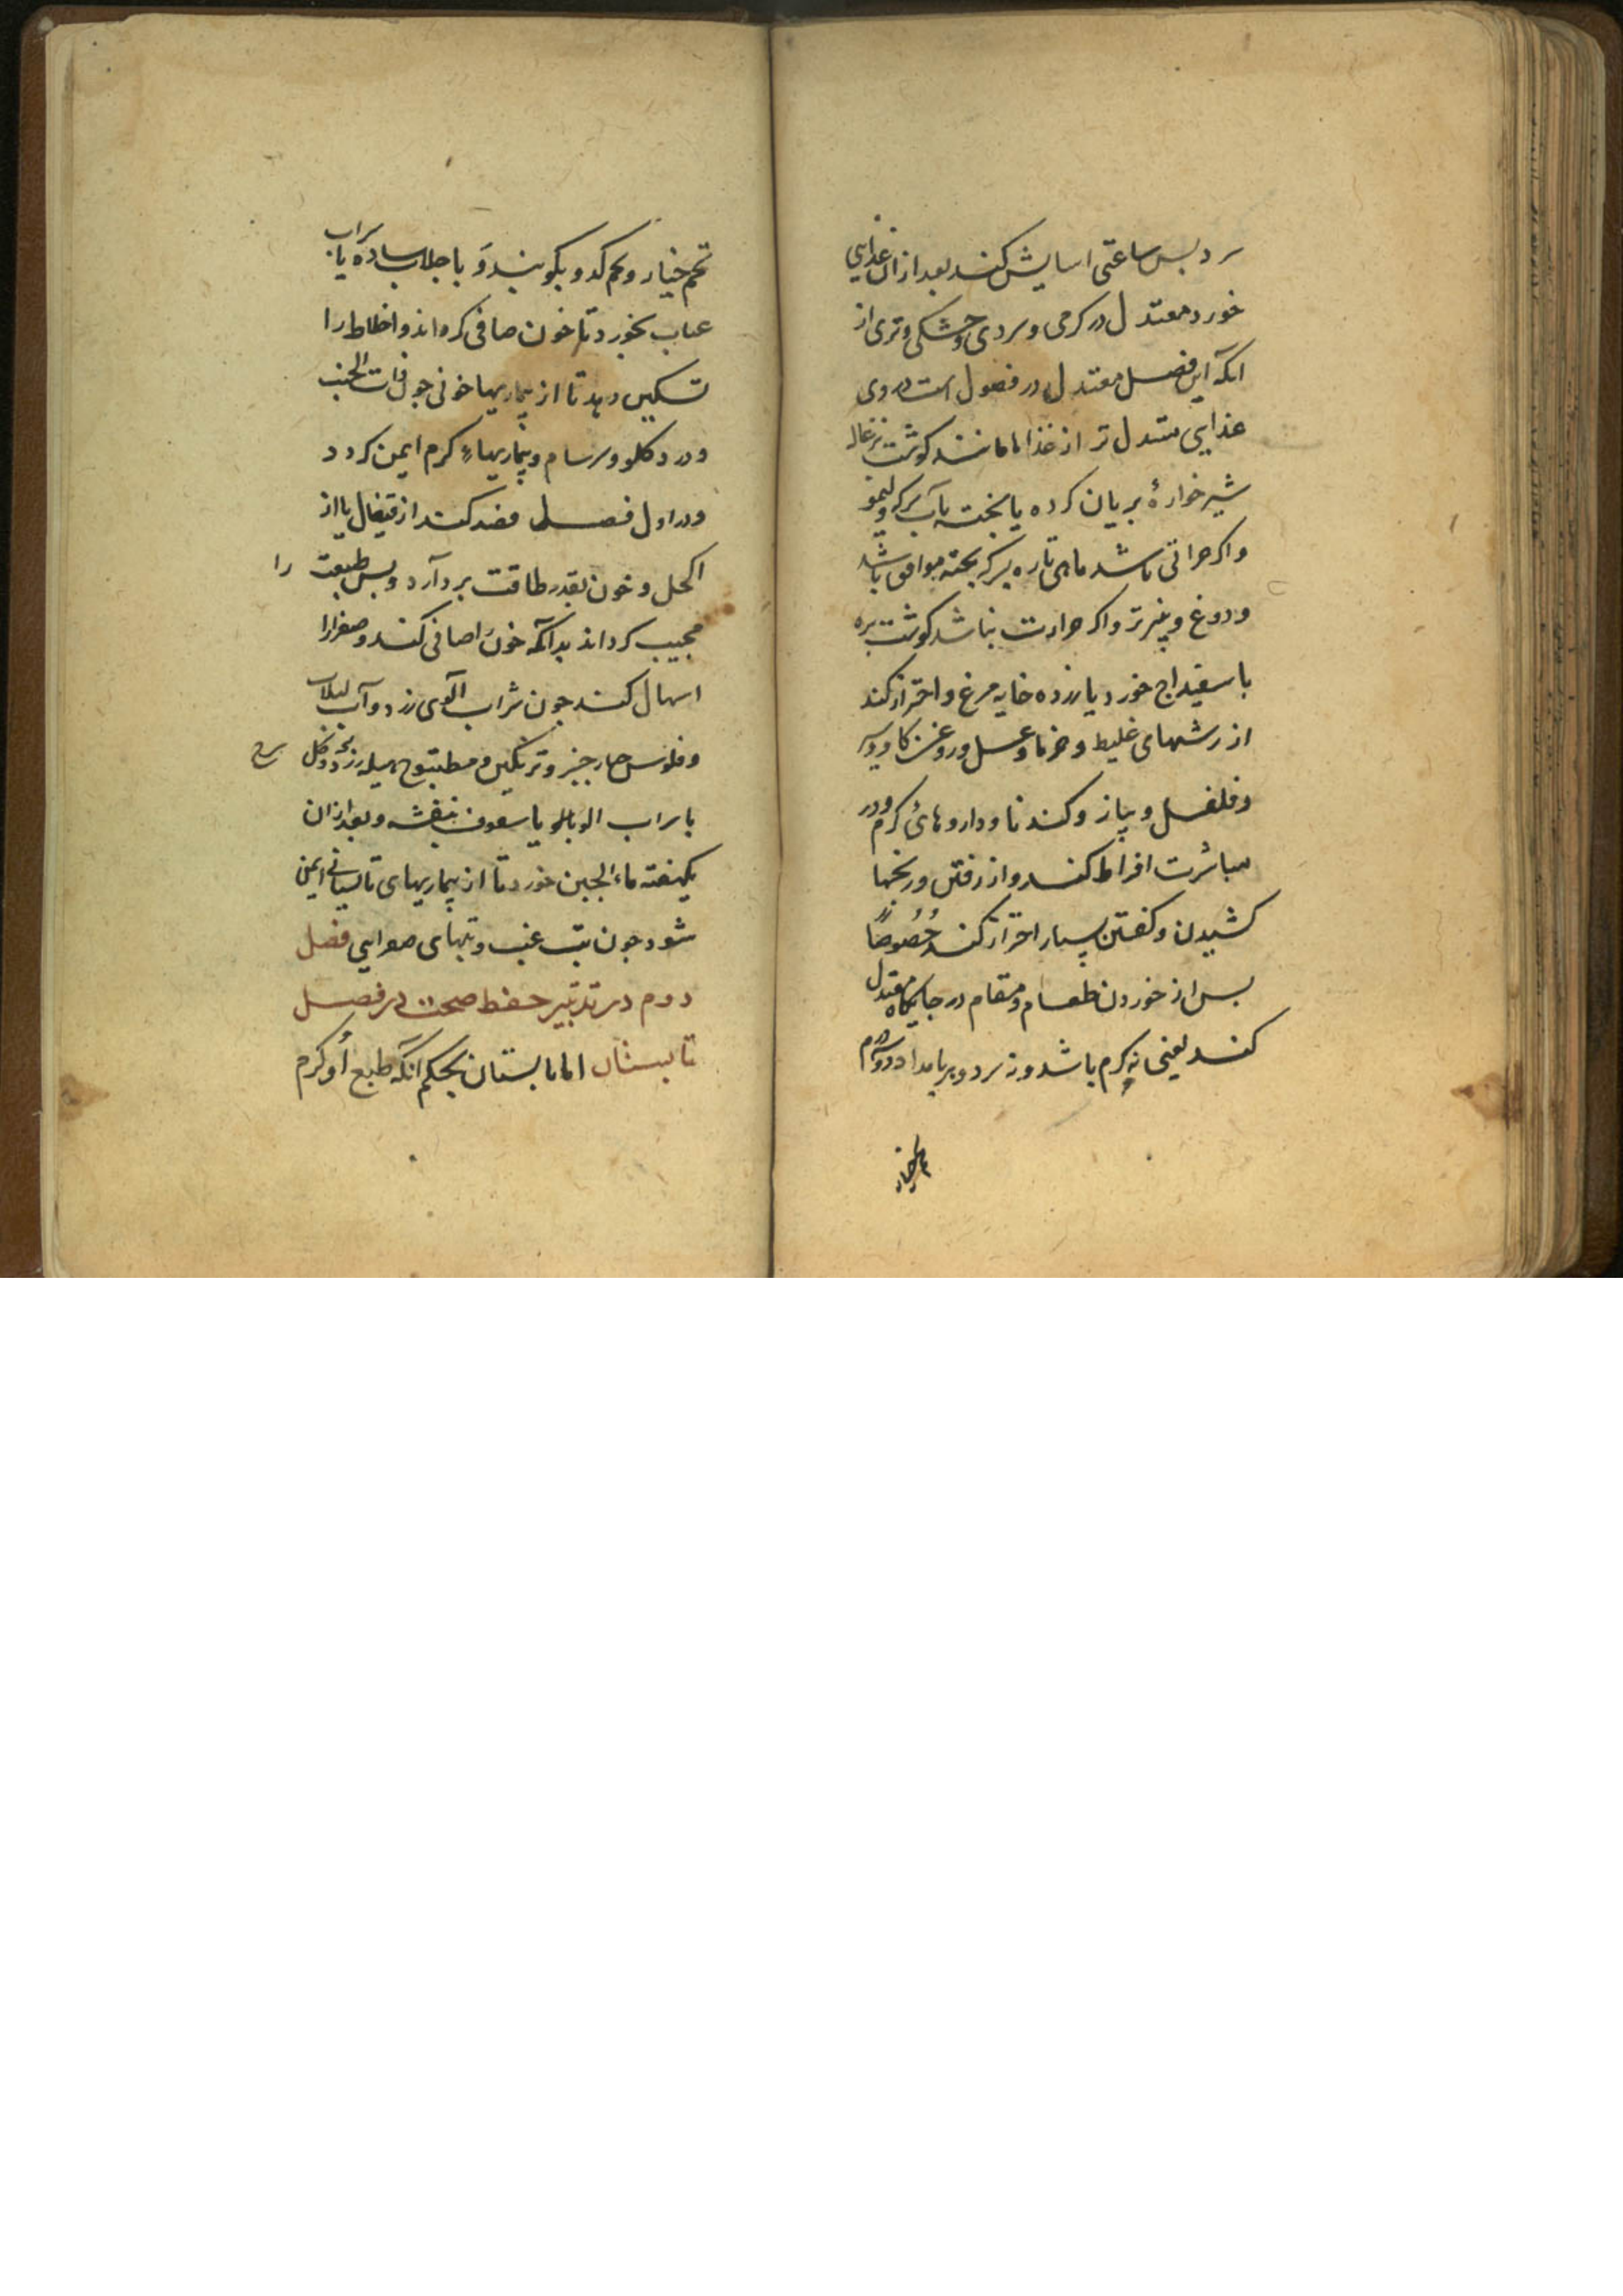 سرد بس ساعتی اسایش کند بعد ازان غذایی
خورد معتدل در کرمی و سردی و خشکی و تری از
انکه این فصل معتدل در فصول است در وی
غذایی معتدل تر از غذاها مانند کوشت بزغاله
شیرخوارهٔ بریان کرده یا بخته بآب سرکه و لیمو
و اکر حراتی باشد ماهی تازه بسرکه بخته موافق باشد
و دوغ و پنیر تر و اکر حرارت نباشد کوشت بره
با سفیداج خورد یا زرده خایه مرغ و احتراز کند
از ترشیهای غلیظ و خرما و عسل و روغن کاو و سیر
و فلفل و پیاز و کندنا و داروهای کرم و در
مباشرت افراط کند و از رفتن و رنجها
کشیدن و کفتن بسیار احتراز کند خُصُوصًا
بس از خوردن طعام و مقام در جایکاه معتدل
کند یعنی نه کرم باشد و نه سرد و هر بامداد دو درم
تخم خیار
تخم خیار و تخم کدو بکوبند وَ با جلاب ساده یا شراب
عناب بخورد تا خون صافی کرداند و اخلاط را
تسکین دهد تا از بیماریها خونی جون ذات الجنب
و درد کلو و سرسام و بیماریهاء کرم ایمن کردد
و در اول فصل فصد کند از قیفال یا از
اکحل و خون بقدر طاقت بردارد و بس طبیعت را
مجیب کرداند بدانکه خون را صافی کند و صفرا را
اسهال کند جون شراب آلوی زرد و آب لبلاب
و فلوس خیار جنبر و ترنکبین و مطبوخ هلیله زرد و کل سرخ
با شراب الوبالو یا سفوف بنفشه و بعد ازان
یکهفته ماء الجبن خورد تا از بیماریهای تابستانی ایمن
شود جون تب غب و تبهای صفرایی فصل
دوم در تدبیر حفظ صحت در فصل
تابستان اما تابستان بحکم انکه طبع اُو کرم